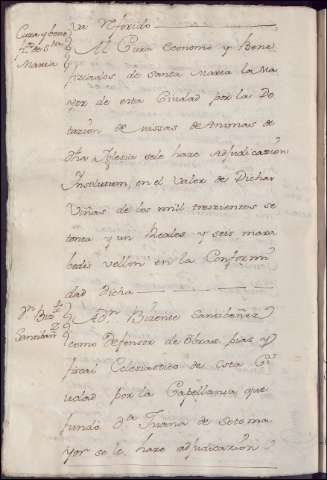 va Referido
Cura y bene
de Sta
Maria
Al Cura Economo y Bene
ficiados de santa Maria la Ma
yor de esta Ciudad por la Do
tazion de missas de Animas de
dha Yglesia sele haze Adjudicazion
Insolutum, en el valor de Dichas
Viñas de los mil trescientos se
tenta y un Reales y seis mara
bedis vellon en la Conformi
dad dicha
Dn Bte
Santibañz
A Dn Bidente Santibañez
como Defensor de Obras pias y
fiscal Eclesiastico de esta Ciu
udad por la Capellania que
fundó Da Juana de Sotoma
yor se le haze adjudicazion